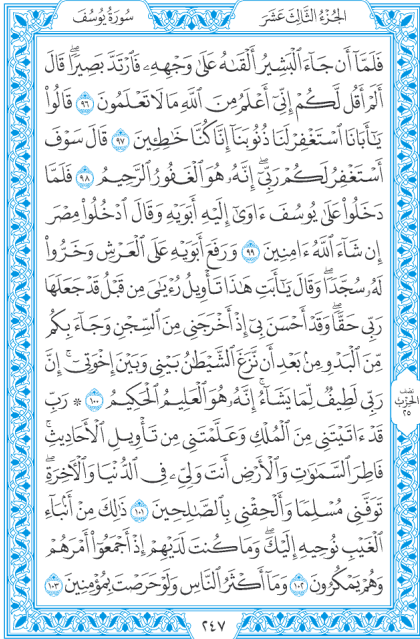 سُورَةُ يُوسُفَ
الجُزْءُ الثَّالِثَ عَشَرَ
فَلَمَّآ أَن جَآءَ ٱلْبَشِيرُ أَلْقَىٰهُ عَلَىٰ وَجْهِهِۦ فَٱرْتَدَّ بَصِيرًۭا ۖ قَالَ
أَلَمْ أَقُل لَّكُمْ إِنِّىٓ أَعْلَمُ مِنَ ٱللَّهِ مَا لَا تَعْلَمُونَ ٩٦ قَالُوا۟
يَـٰٓأَبَانَا ٱسْتَغْفِرْ لَنَا ذُنُوبَنَآ إِنَّا كُنَّا خَـٰطِـِٔينَ ٩٧ قَالَ سَوْفَ
أَسْتَغْفِرُ لَكُمْ رَبِّىٓ ۖ إِنَّهُۥ هُوَ ٱلْغَفُورُ ٱلرَّحِيمُ ٩٨ فَلَمَّا
دَخَلُوا۟ عَلَىٰ يُوسُفَ ءَاوَىٰٓ إِلَيْهِ أَبَوَيْهِ وَقَالَ ٱدْخُلُوا۟ مِصْرَ
إِن شَآءَ ٱللَّهُ ءَامِنِينَ ٩٩ وَرَفَعَ أَبَوَيْهِ عَلَى ٱلْعَرْشِ وَخَرُّوا۟
لَهُۥ سُجَّدًۭا ۖ وَقَالَ يَـٰٓأَبَتِ هَـٰذَا تَأْوِيلُ رُءْيَـٰىَ مِن قَبْلُ قَدْ جَعَلَهَا
رَبِّى حَقًّۭا ۖ وَقَدْ أَحْسَنَ بِىٓ إِذْ أَخْرَجَنِى مِنَ ٱلسِّجْنِ وَجَآءَ بِكُم
مِّنَ ٱلْبَدْوِ مِنۢ بَعْدِ أَن نَّزَغَ ٱلشَّيْطَـٰنُ بَيْنِى وَبَيْنَ إِخْوَتِىٓ ۚ إِنَّ
رَبِّى لَطِيفٌۭ لِّمَا يَشَآءُ ۚ إِنَّهُۥ هُوَ ٱلْعَلِيمُ ٱلْحَكِيمُ ١٠٠ ۞ رَبِّ
قَدْ ءَاتَيْتَنِى مِنَ ٱلْمُلْكِ وَعَلَّمْتَنِى مِن تَأْوِيلِ ٱلْأَحَادِيثِ ۚ
فَاطِرَ ٱلسَّمَـٰوَٰتِ وَٱلْأَرْضِ أَنتَ وَلِىِّۦ فِى ٱلدُّنْيَا وَٱلْـَٔاخِرَةِ ۖ
تَوَفَّنِى مُسْلِمًۭا وَأَلْحِقْنِى بِٱلصَّـٰلِحِينَ ١٠١ ذَٰلِكَ مِنْ أَنۢبَآءِ
ٱلْغَيْبِ نُوحِيهِ إِلَيْكَ ۖ وَمَا كُنتَ لَدَيْهِمْ إِذْ أَجْمَعُوٓا۟ أَمْرَهُمْ
وَهُمْ يَمْكُرُونَ ١٠٢ وَمَآ أَكْثَرُ ٱلنَّاسِ وَلَوْ حَرَصْتَ بِمُؤْمِنِينَ ١٠٣
نصف
الحزب
٢٥
٢٤٧